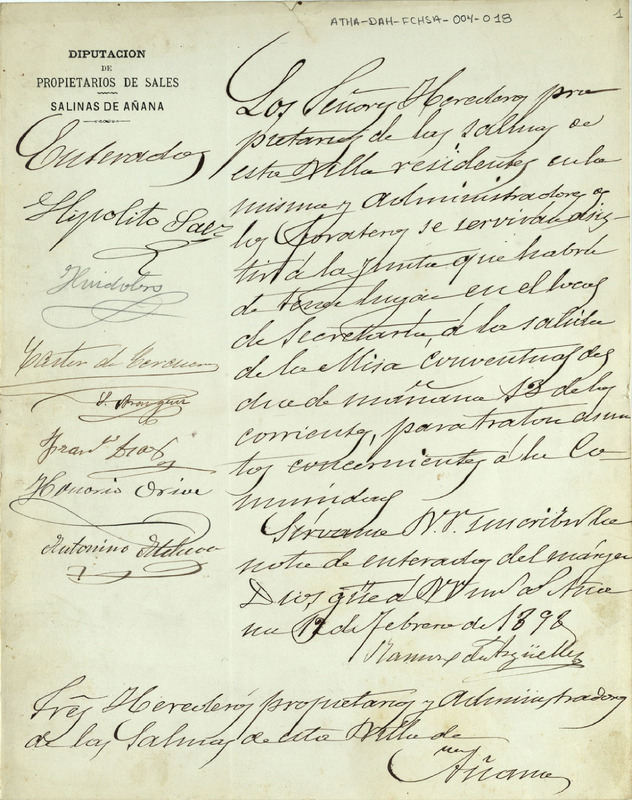 ATHA-DAH-FCHSA-004-018
1
DIPUTACION
DE
PROPIETARIOS DE SALES
SALINAS DE AÑANA
Enterados
Hipolito Saez
Huidobro
Castor de
S. Aranguiz
Fran.co Diaz
Honorio Orive
Antonino
Los Señores Herederos pro
pietarios de las salinas de
esta Villa residentes en la
misma y Administradores de
los forasteros se servirán asis-
tir á la Junta que habrá
de tener lugar en el local
de Secretaría, á la salida
de la Misa Conventual del
dia de mañana 13 de los
corrientes, para tratar asun
tos concernientes á la Co-
munidad
Sírvanse VV. suscribir la
nota de enterados del márgen
Dios güe á VV. m.s a.s Aña
na 12 de Febrero de 1898
Ramon de Argüelles
Sres Herederos propietarios y Administradores
de las Salinas de esta Villa de
Añana